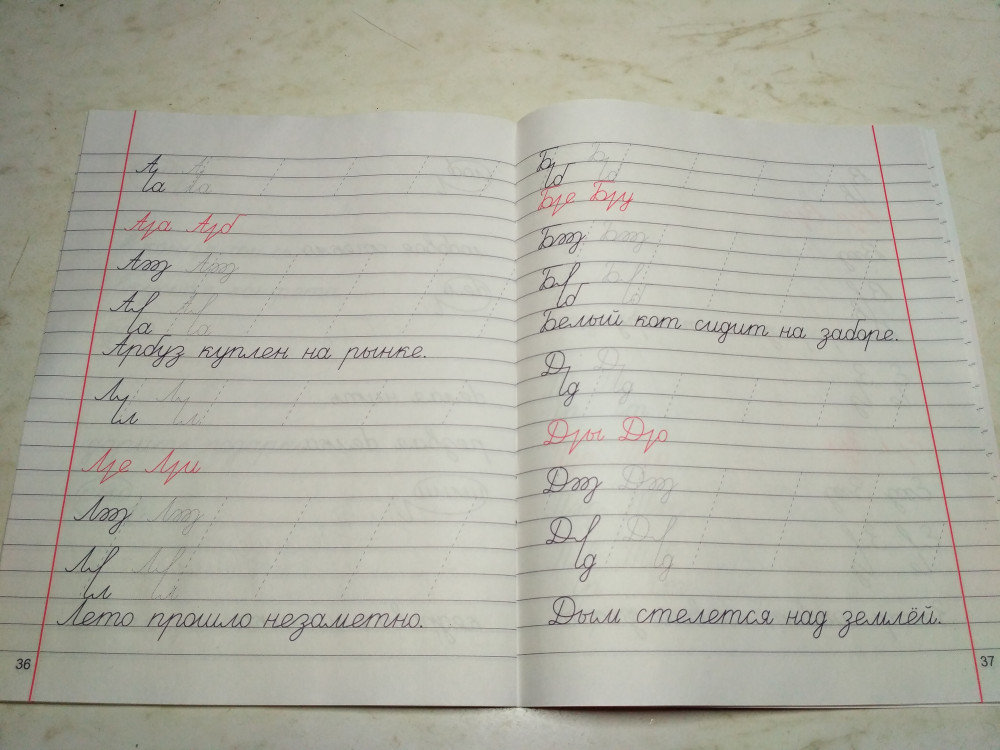 А А
а а
Ара Арб
А А
а а
Арбуз куплен на рынке.
Л Л
л л
Лре Лри
Л Л
л л
Лето прошло незаметно.
36
Б Б
б б
Бре Бру
Б Б
б б
Белый кот сидит на заборе.
Д Д
д д
Дры Дро
Д Д
д д
Дым стелется над землёй.
37